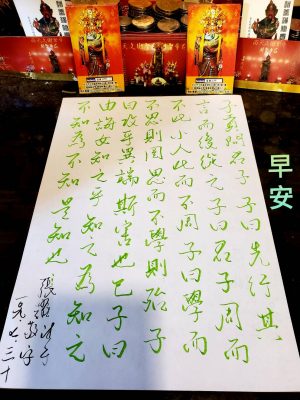 子貢問君子子曰先行其
言而後從之子曰君子周而
不比小人比而不周子曰學而
不思則罔思而不學則殆子
曰攻乎異端斯害也已子曰
由誨女知之乎知之為知之
不知為不知是知也
敬字
七三十
早安